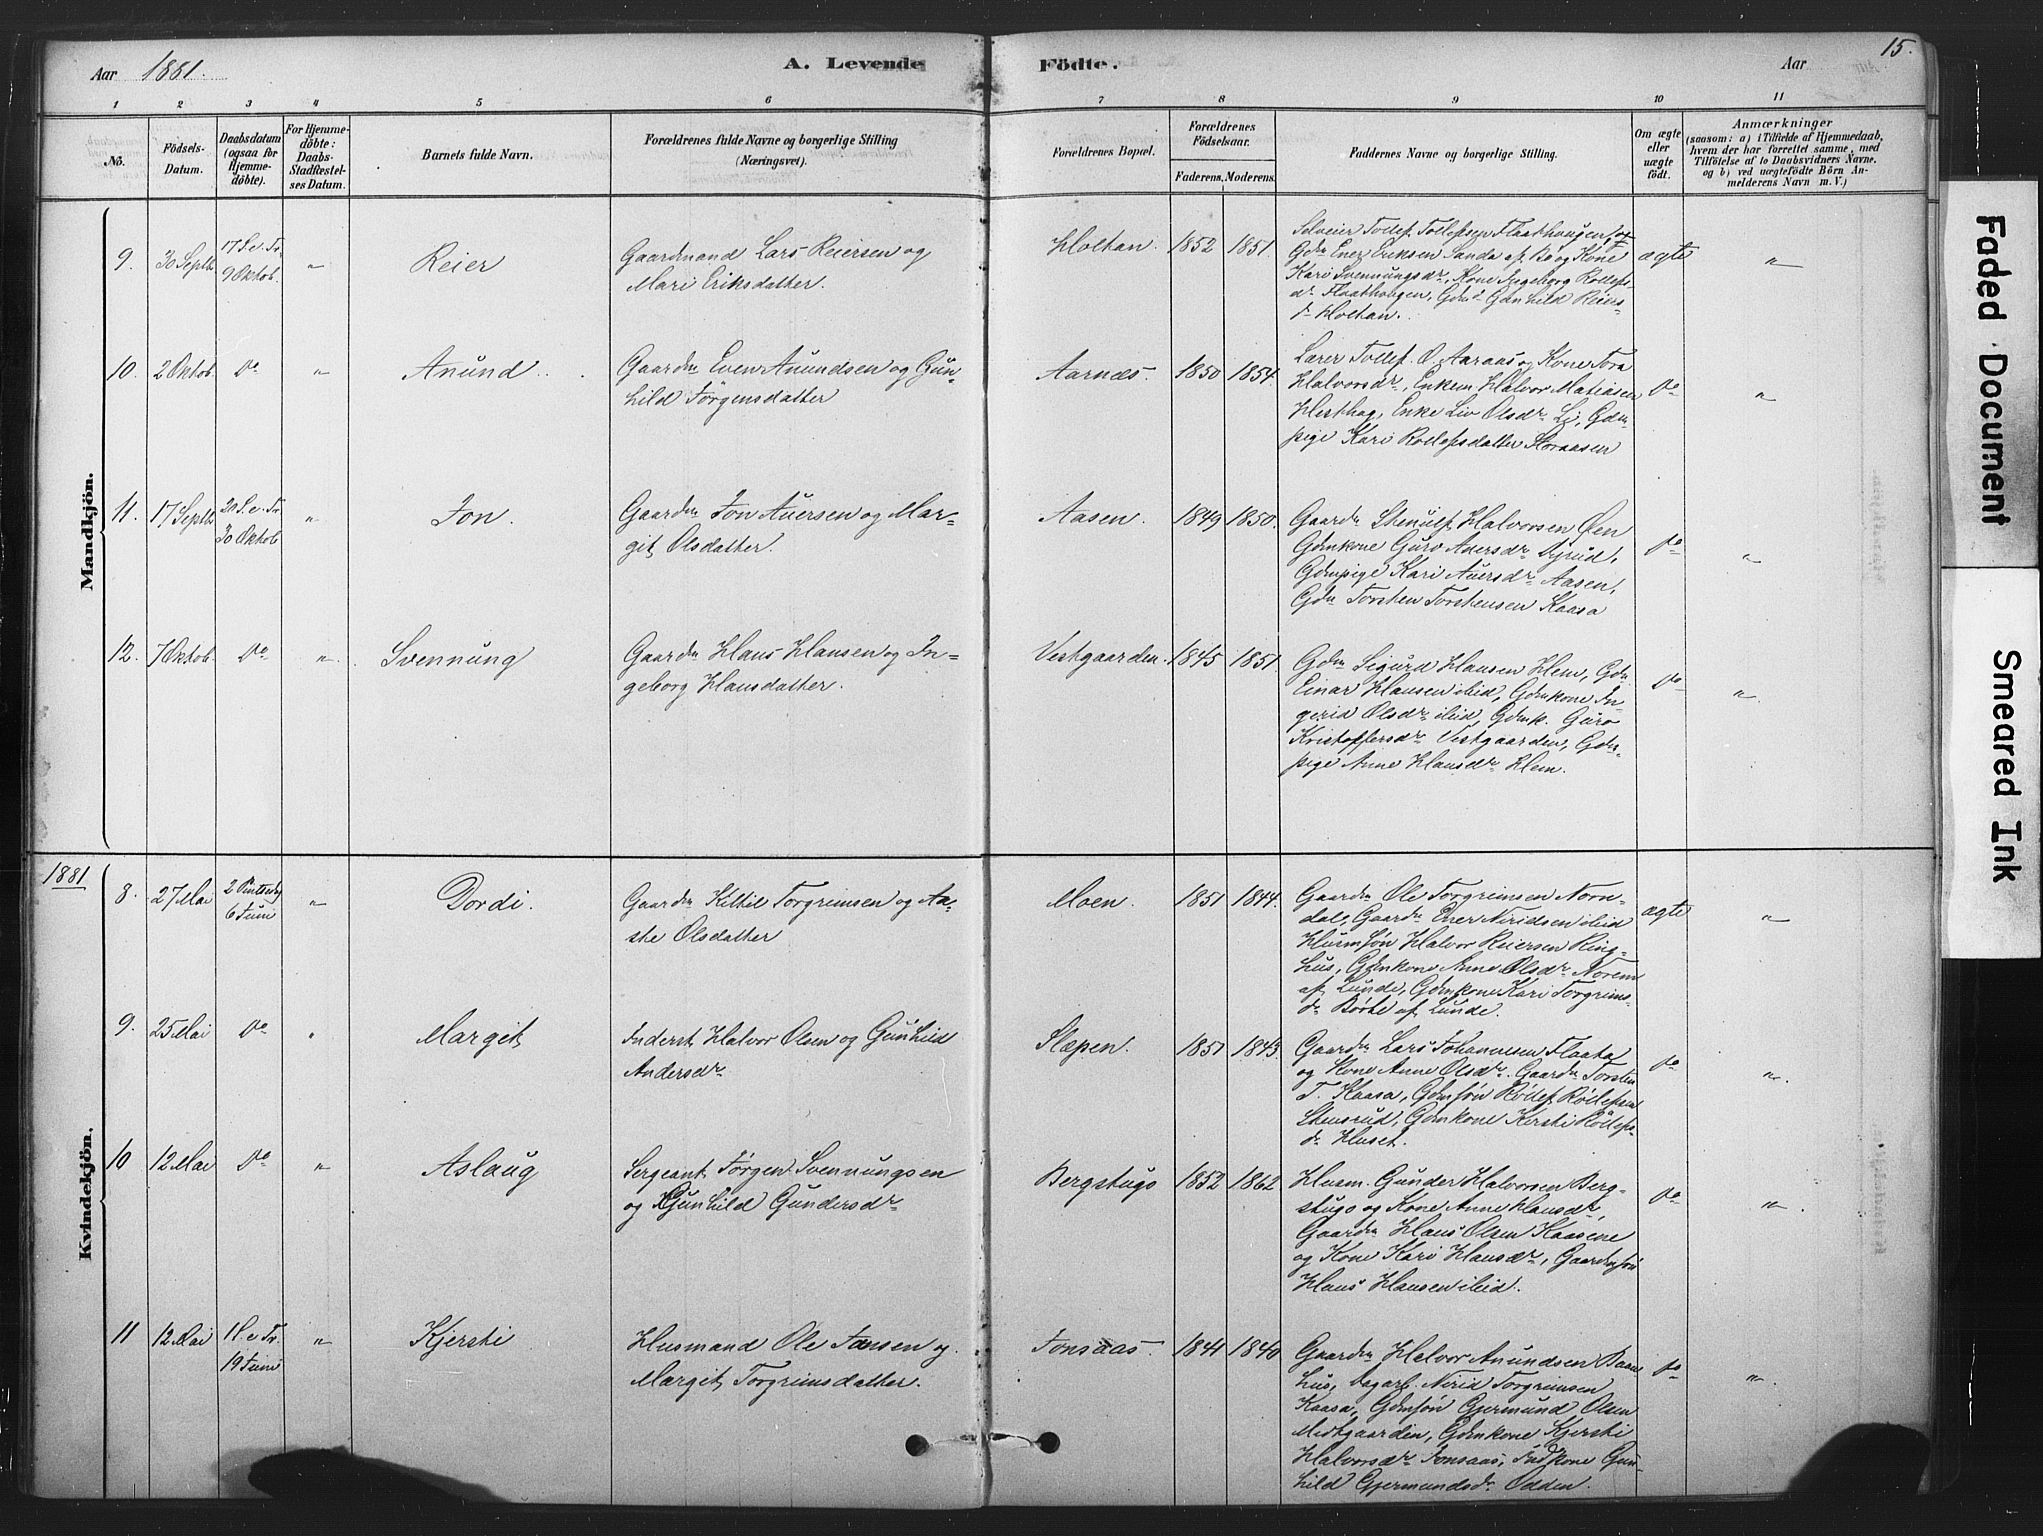 15.
Aar 1881.
A. Levende Födte.
Aar
1 2 3 4 5 6 7 8 9 10 11
No.
Födsels-
Datum.
Daabsdatum
(ogsaa for
Hjemme-
döbte).
For Hjemme-
döbte:
Daabs-
Stadfæstel-
ses Datum.
Barnets fulde Navn.
Forældrenes fulde Navne og borgerlige Stilling
(Næringsvei).
Forældrenes Bopæl.
Forældrenes
Födselsaar.
Faderens. Moderens.
Faddernes Navne og borgerlige Stilling.
Om ægte
eller
uægte
födt.
Anmærkninger
(saasom: a) i Tilfælde af Hjemmedaab,
hvem der har forrettet samme, med
Tilföielse af to Daabsvidners Navne.
og b) ved uægtefödte Börn An-
melderens Navn m. V.)
Mandkjön.
9. 30 Septb
17 S. e. Tr.
9 Oktob.
"
Reier
Gaardmand Lars Reiersen og
Mari Eriksdatter.
Holtan. 1852 1851.
Selveier Tollef Tollefsen Flaathougen, og
Gdm Ener Eriksen Sanda af Bø og Kone
Kari Svennungsdr, Kone Ingeborg Rollefs-
dr Flaathougen, Gdm Gunhild Reiers-
dr Holtan.
ægte
"
10. 2 Oktob. do "
Anund
Gaardm Even Anundsen og Gun-
hild Jörgensdatter
Aarnes. 1850 1854.
Lærer Tollef O. Aaraas og Kone Tora
Halvorsdr, Enkem. Halvor Matiasen
Hesthag, Enke Liv Olsdr Li, Gdm-
pige Kari Rollefsdatter Storaasen
do
"
11. 17 Septb
20 S. e. Tr.
30 Oktob.
"
Jon.
Gaardm Jon Auersen og Mar-
git Olsdatter.
Aasen. 1849 1850.
Gaardm Stenulf Halvorsen Øen
Gdmkone Guro Auersdr Dyrud,
Gdmpige Kari Auersdr Aasen,
Gdm Torsten Torstensen Kaasa
do
"
12. 7 Oktob. do "
Svennung
Gaardm Hans Hansen og In-
geborg Hansdatter.
Vestgaarden. 1845 1851
Gdm Sigurd Hansen Hem, Gdm
Einar Hansen ibid, Gdmkone In-
gerid Olsdr ibid, Gdmk. Guro
Kristoffersdr Vestgaarden, Gdm-
pige Anne Hansdr Hem.
do
"
1881
Kvindekjön.
8. 27 Mai
2 Pintsedag
6 Juni
"
Dordi.
Gaardm Kittil Torgrimsen og Aa-
ste Olsdatter
Moen. 1851 1844.
Gaardm Ole Torgrimsen Norn-
dal, Gaardm Ener Niridsen ibid
Husmsön Halvor Reiersen Ring-
hus, Gdmkone Anne Olsdr Norem
af Lunde, Gdmkone Kari Torgrims-
dr Børte af Lunde.
ægte
"
9. 25 Mai do "
Margit
Inderst Halvor Olsen og Gunhild
Andersdr
Slæpen. 1851 1843.
Gaardm Lars Johannesen Flaata
og Kone Anne Olsdr. Gaardm Torsten
T. Kaasa, Gdmsön Rollef Rollefsen
Stensrud, Gdmkone Kirsti Rollefs-
dr Huset.
do
"
10 12 Mai do "
Aslaug
Sergeant Jørgen Svennungsen
og Gunhild Gundersdr
Bergstugo 1852 1862
Husm. Gunder Halvorsen Berg-
stugo og Kone Anne Hansdr,
Gaardm Hans Olsen Kaasene
og Kone Kari Hansdr, Gaardmsön
Hans Hansen ibid.
do
"
11 12 Mai
1 S. e Tr.
19 Juni
"
Kjersti
Husmand Ole Jansen og
Margit Torgrimsdatter.
Jonsaas. 1841 1840
Gaardm Halvor Anundsen Baas-
hus, Dagarb. Nirid Torgrimsen
Kaasa, Gdmsön Gjermund Olsen
Midtgaarden, Gdmkone Kjersti
Halvorsdr Jonsaas, Indkone Gun-
hild Gjermundsdr Odden.
do
"
Faded Document
Smeared Ink